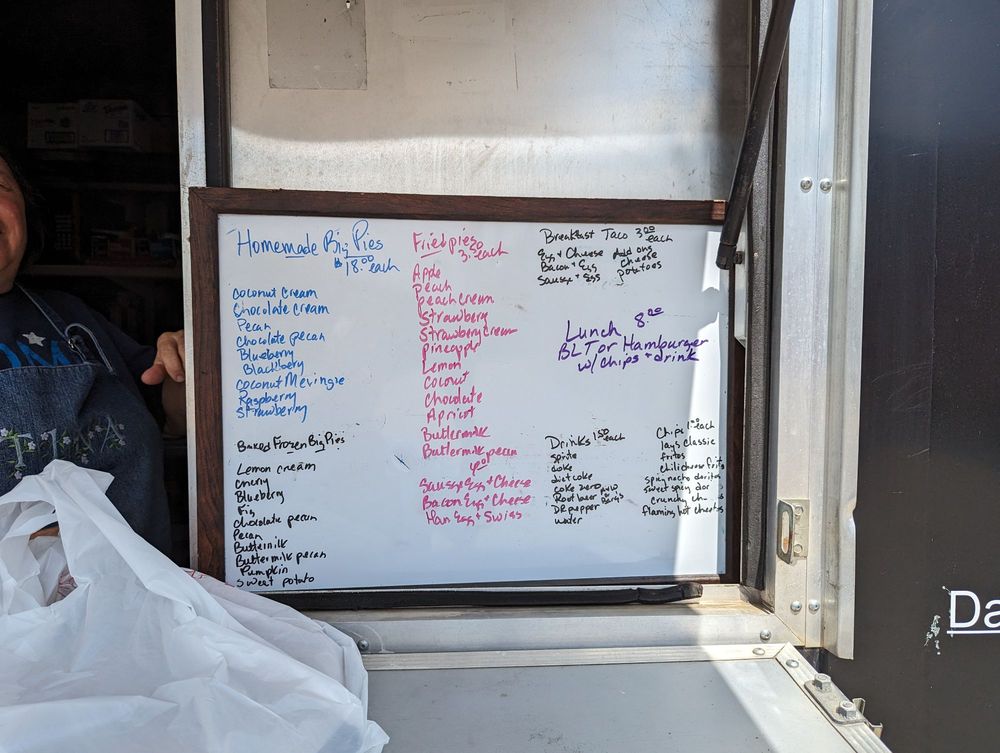 Homemade Big Pies
$18.00 each
Coconut Cream
Chocolate Cream
Pecan
Chocolate pecan
Blueberry
Blackberry
Coconut Meringie
Raspberry
Strawberry
Baked Frozen Big Pies
Lemon cream
Blueberry
Fig
Chocolate pecan
Pecan
Buttermilk
Buttermilk pecan
Pumpkin
Sweet potato
Fried pies
3.50 each
Apple
Peach
peach cream
Strawberry
Strawberry cream
Pineapple
Lemon
Coconut
Chocolate
Apricot
Buttermilk
Buttermilk pecan
Sausage Egg + Cheese
Bacon Egg + Cheese
Ham Egg + Swiss
Breakfast Taco 3.00 each
Egg + Cheese
Bacon + Egg
Sausge + Egg
Add ons
Cheese
potatoes
Lunch 8.00
BLT or Hamburger
w/ chips + drink
Drinks 1.50 each
sprite
coke
diet coke
coke zero
Root beer
DR pepper
water
Chips 1.00 each
lays classic
fritos
chili cheese frito
spicy nacho doritos
sweet spicy dor
crunchy ch
flaming hot cheetos
Da